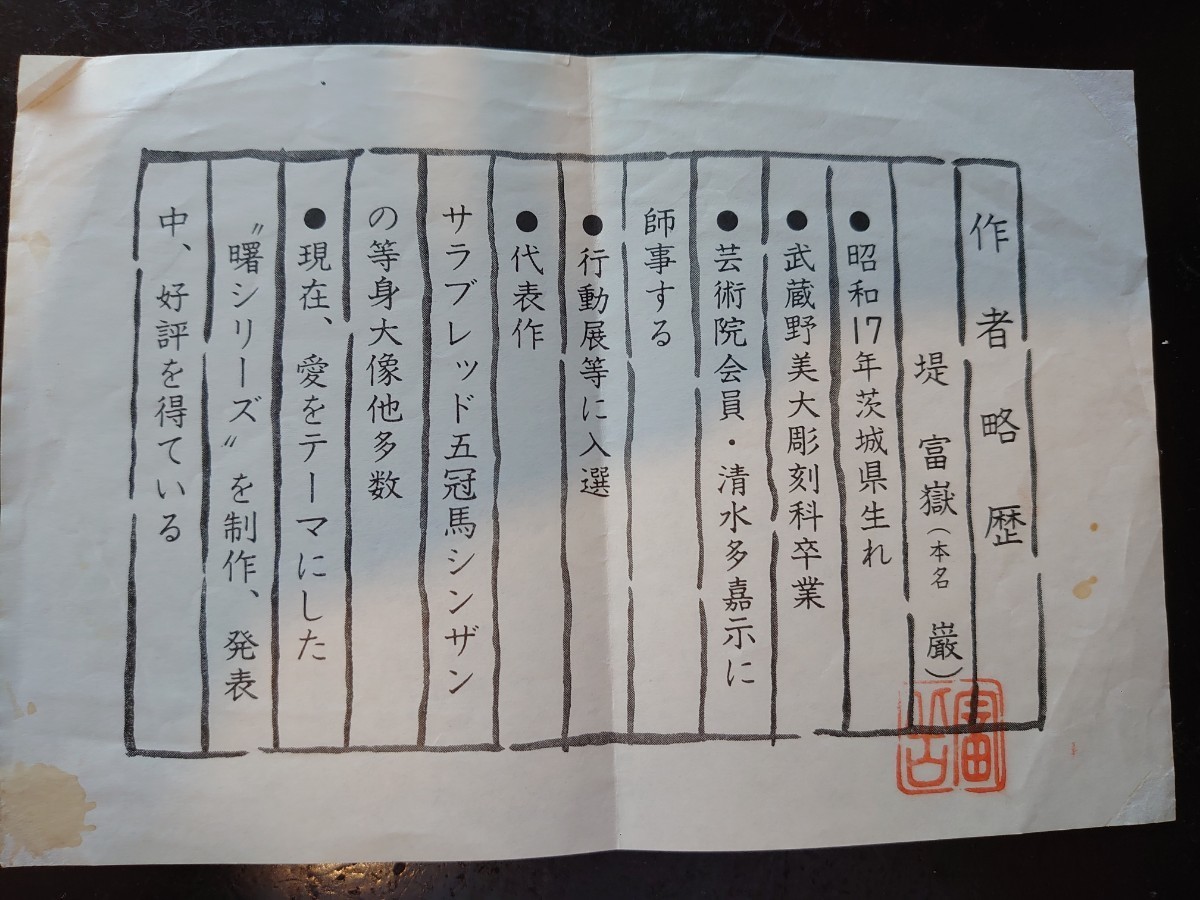 作者略歴
堤 富嶽（本名 巌）
●昭和17年茨城県生れ
●武蔵野美大彫刻科卒業
●芸術院会員・清水多嘉示に
師事する
●行動展等に入選
●代表作
サラブレッド五冠馬シンザン
の等身大像他多数
●現在、愛をテーマにした
〝曙シリーズ〟を制作、発表
中、好評を得ている
富岳